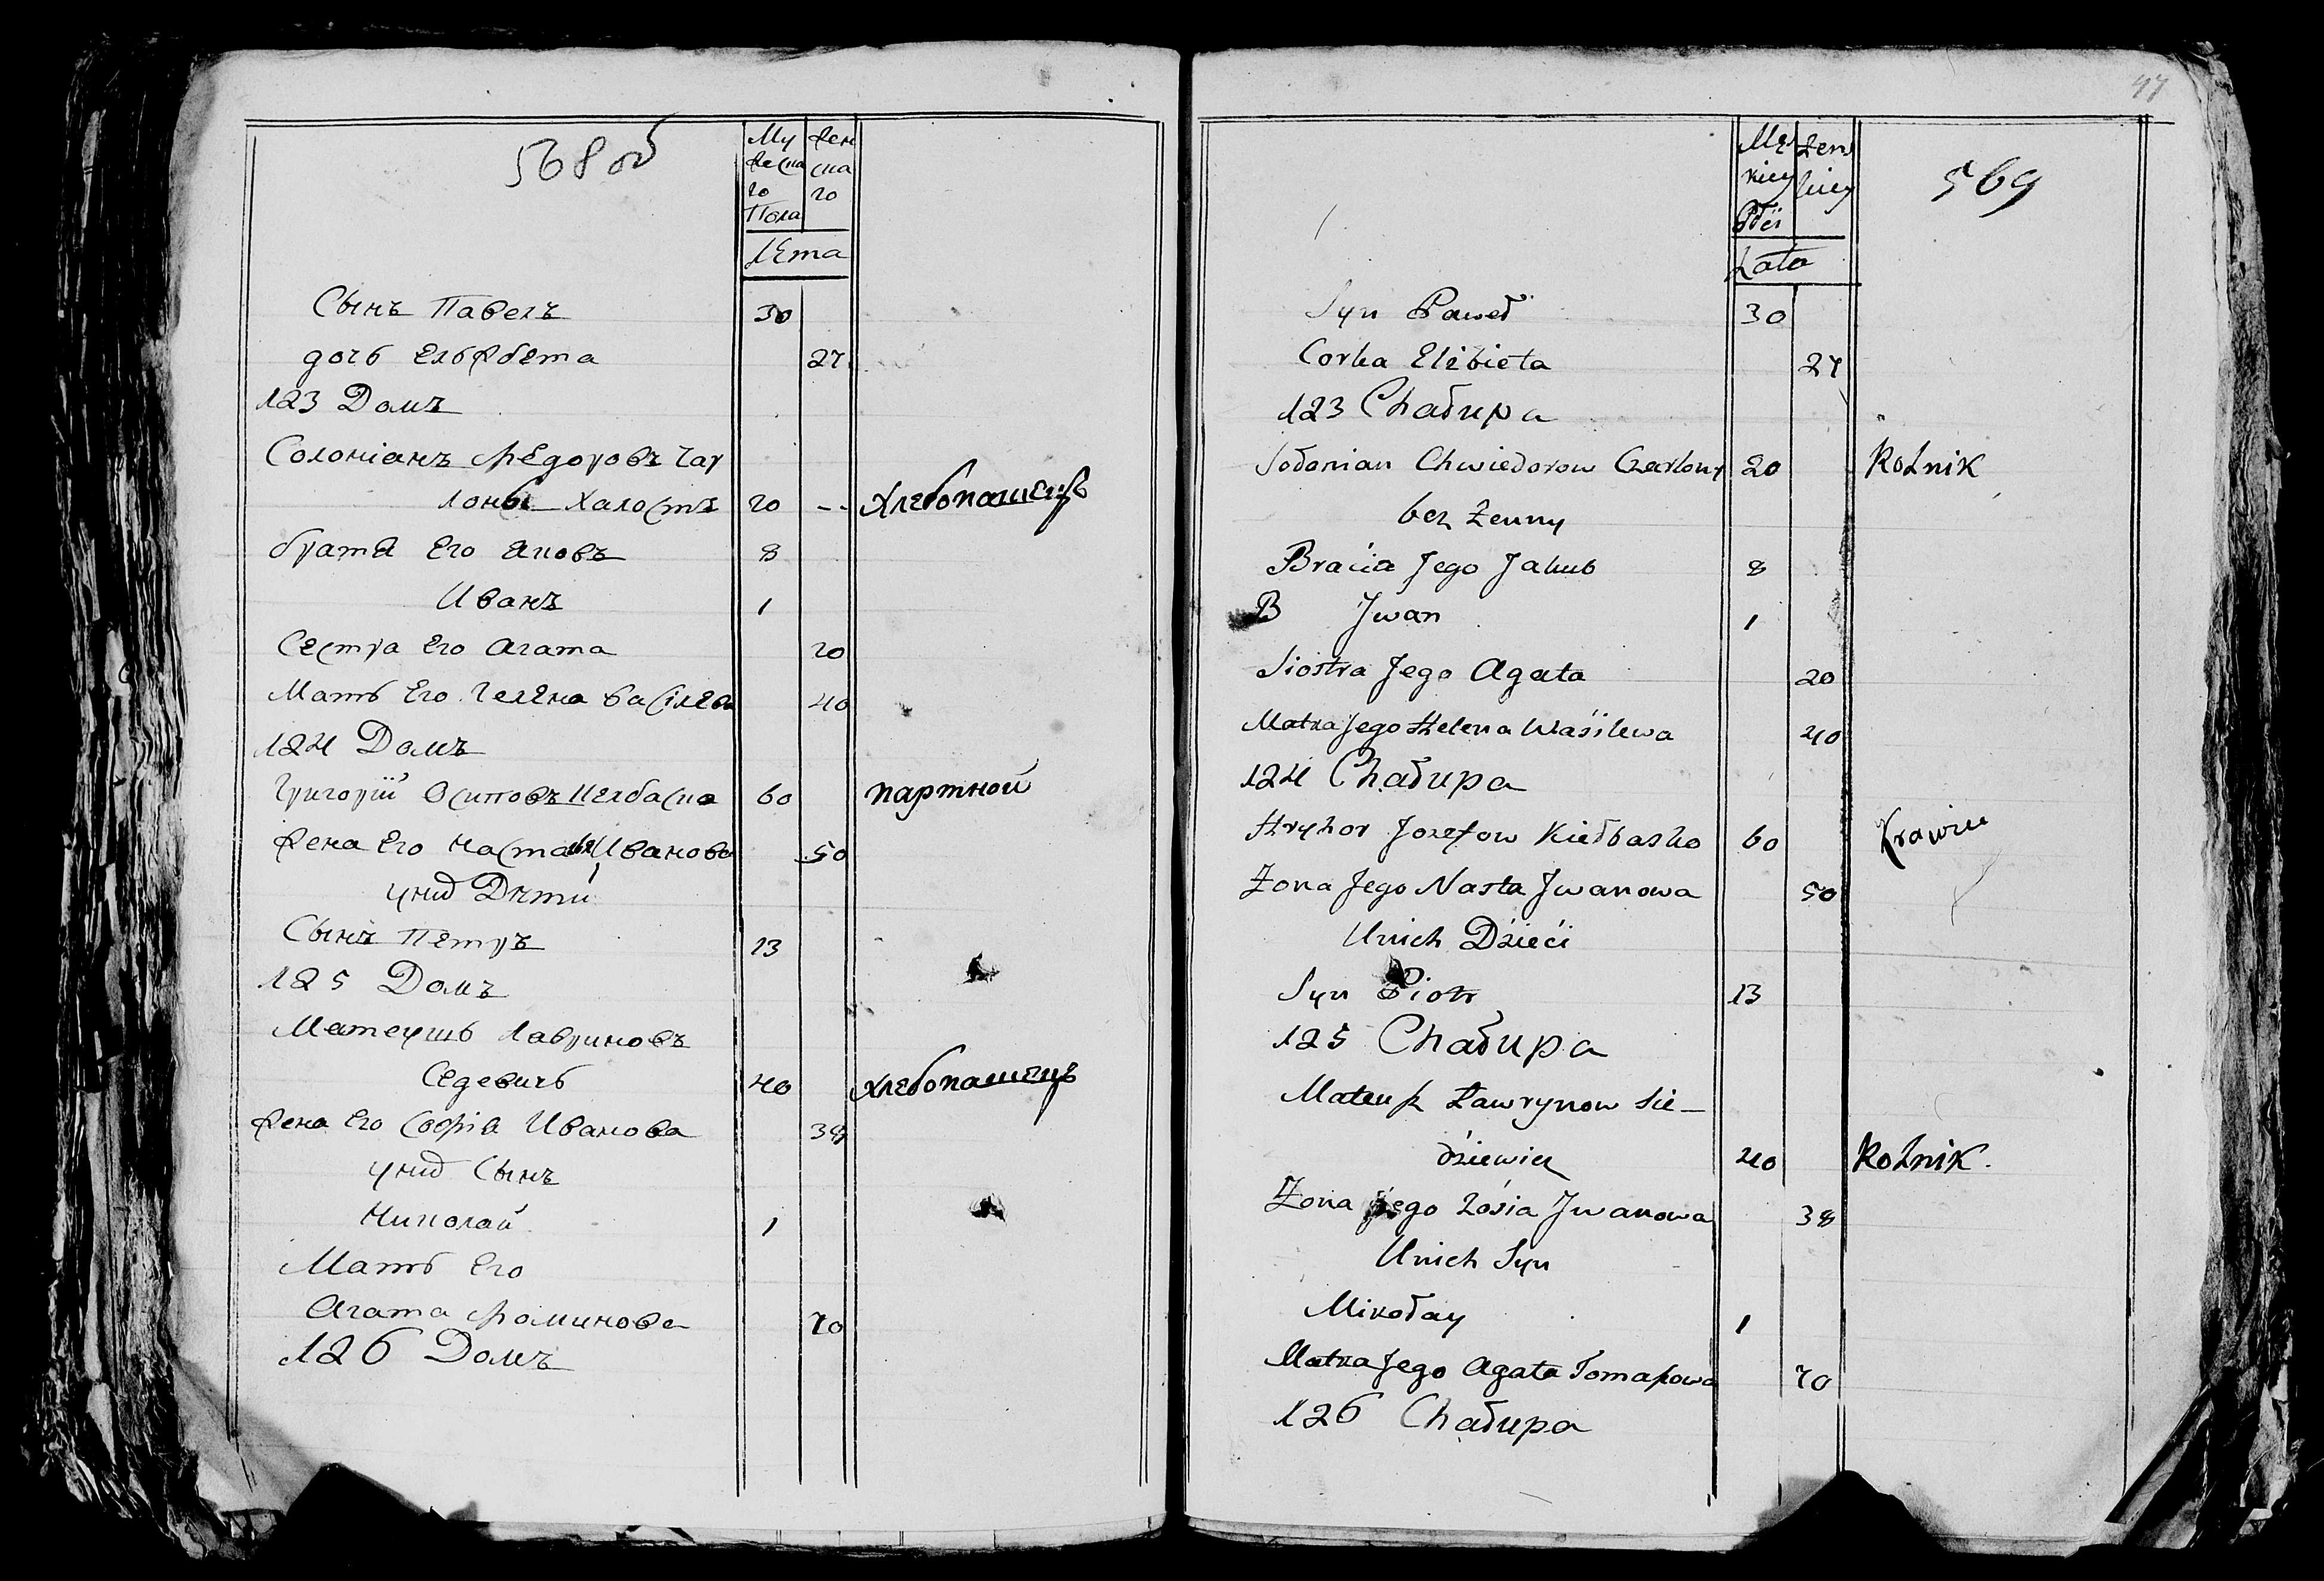 568 об
Му
жеска
го
Пола
жен
ска
го
лета
Сынъ Павелъ 30
дочь Ельжбета 27
123 Домъ
Солоніанъ Федоровъ Чар
лоны Халостъ 20 -- Хлебопашецъ
братя Его Яковъ 8
Иванъ 1
Сестра Его Агата 20
Мать Его Гелена Васілева 40
124 Домъ
Григорій Осиповъ Келбаска 60 партной
жена Его Настася Иванова 50
уних Дѣти
Сынъ Петръ 13
125 Домъ
Матеушъ Лавриновъ
Седевичъ 40 Хлебопашецъ
жена Его Софія Иванова 38
уних Сынъ
Николай 1
Мать Его
Агата Фоминова 70
126 Домъ
47
569
Męz
kiey
Płći
Zens
kiey
Lata
Syn Paweł 30
Corka Elżbieta 27
123 Chałupa
Sołonian Chwiedorow Czarlony 20 Rolnik
bez Zenny
Bracia Jego Jakub 8
B Jwan 1
Siostra Jego Agata 20
Matka Jego Helena Wasilewa 40
124 Chałupa
Hryhor Jozefow Kiełbasko 60 Krawiec
Zona Jego Nasta Jwanowa 50
Unich Dzieći
Syn Piotr 13
125 Chałupa
Mateusz Ławrynow Sie-
dziewicz 40 Rolnik.
Zona jego Zósia Jwanowa 38
Unich Syn
Mikołay 1
Matka Jego Agata Tomaszowa 70
126 Chałupa